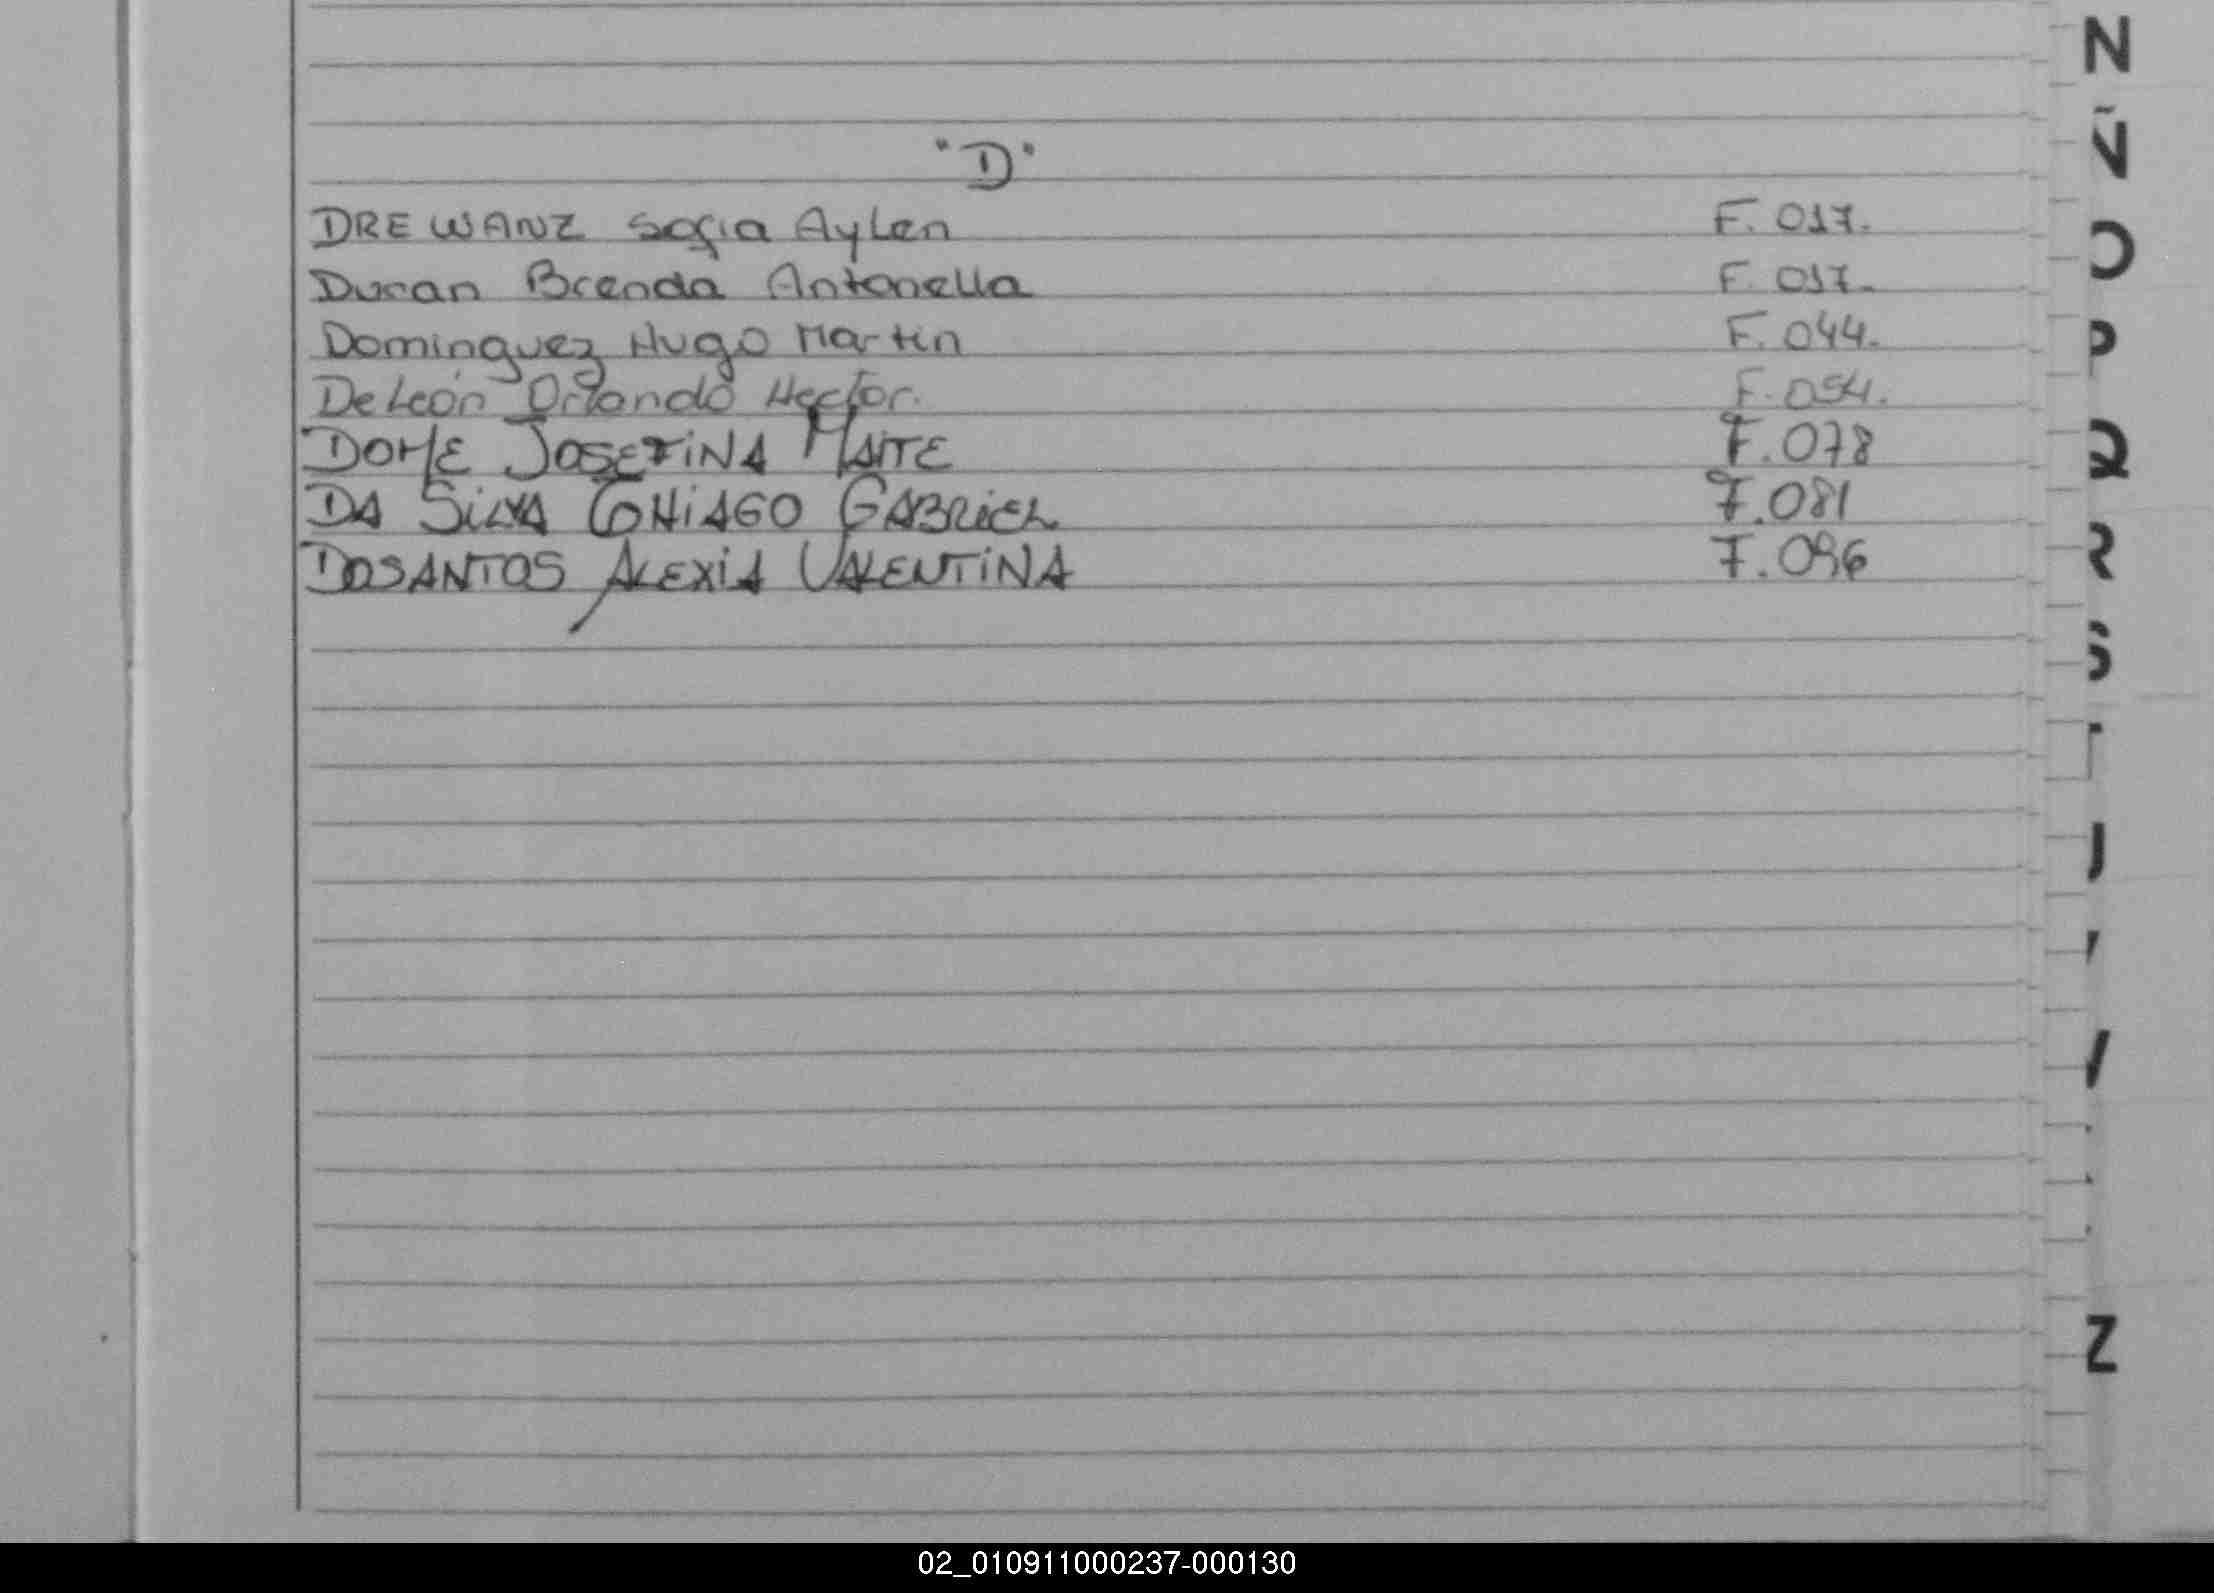 "D"
DREWANZ Sofia Aylen F. 017.
Duran Brenda Antonella F. 017.
Dominguez Hugo Martin F. 044.
De León Orlando Hector. F. 054.
DOME JOSEFINA MAITE F. 078
DA SILVA THIAGO GABRIEL F. 081
DOSANTOS ALEXIA VALENTINA F. 096
N
Ñ
O
P
Q
R
S
T
U
V
Z
02_010911000237-000130